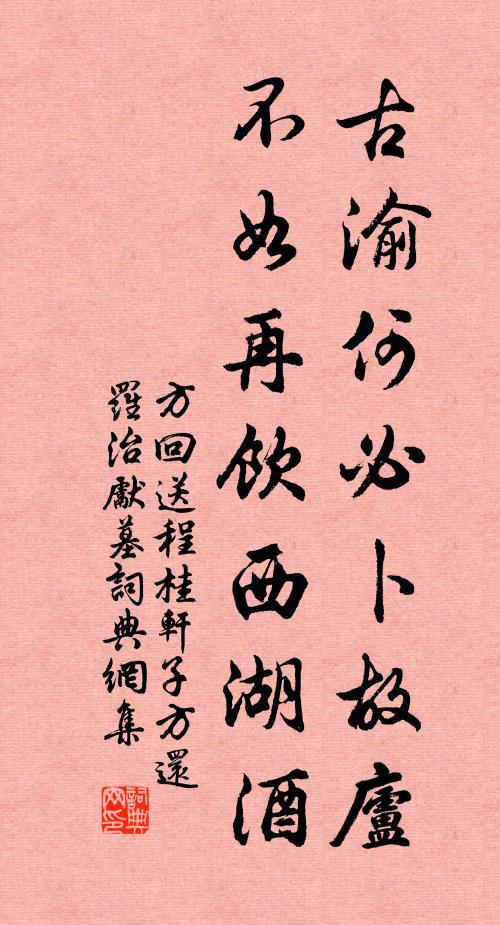 古渝何必卜故廬
不如再飲西湖酒
方回送程桂軒子方還
羅治獻墓詞典網集
詞典网印